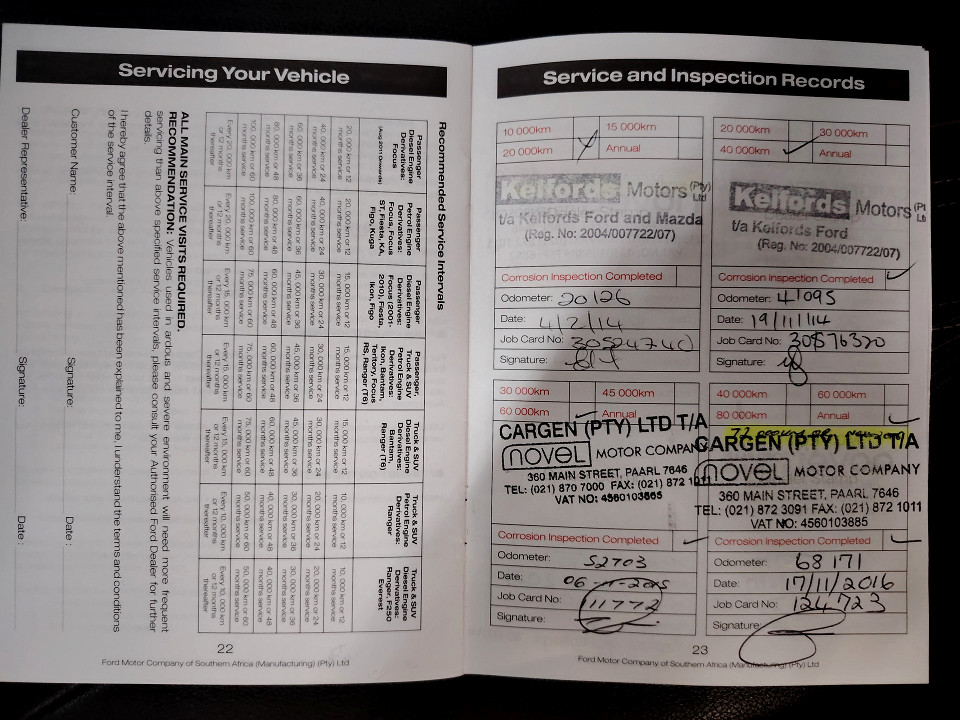 Servicing Your Vehicle
Recommended Service Intervals
Passenger Diesel Engine Derivatives: Focus (Aug 2011 Onwards)
Passenger Petrol Engine Derivatives: Focus, Focus ST, Fiesta, KA, Figo, Kuga
Passenger Diesel Engine Derivatives: Focus (2001-2010), Fiesta, Ikon, Figo
Passenger, Truck & SUV Petrol Engine Derivatives: Ikon, Bantam, Territory, Focus RS, Ranger (T6)
Truck & SUV Diesel Engine Derivatives: Bantam, Ranger (T6)
Truck & SUV Petrol Engine Derivatives: Ranger
Truck & SUV Diesel Engine Derivatives: Ranger, F250 Everest
20, 000 km or 12 months service
20, 000 km or 12 months service
15, 000 km or 12 months service
15, 000 km or 12 months service
15, 000 km or 12 months service
10, 000 km or 12 months service
10, 000 km or 12 months service
40, 000 km or 24 months service
40, 000 km or 24 months service
30, 000 km or 24 months service
30, 000 km or 24 months service
30, 000 km or 24 months service
20, 000 km or 24 months service
20, 000 km or 24 months service
60, 000 km or 36 months service
60, 000 km or 36 months service
45, 000 km or 36 months service
45, 000 km or 36 months service
45, 000 km or 36 months service
30, 000 km or 36 months service
30, 000 km or 36 months service
80, 000 km or 48 months service
80, 000 km or 48 months service
60, 000 km or 48 months service
60, 000 km or 48 months service
60, 000 km or 48 months service
40, 000 km or 48 months service
40, 000 km or 48 months service
100, 000 km or 60 months service
100, 000 km or 60 months service
75, 000 km or 60 months service
75, 000 km or 60 months service
75, 000 km or 60 months service
50, 000 km or 60 months service
50, 000 km or 60 months service
Every 20, 000 km or 12 months thereafter
Every 20, 000 km or 12 months thereafter
Every 15, 000 km or 12 months thereafter
Every 15, 000 km or 12 months thereafter
Every 15, 000 km or 12 months thereafter
Every 10, 000 km or 12 months thereafter
Every 10, 000 km or 12 months thereafter
ALL MAIN SERVICE VISITS REQUIRED.
RECOMMENDATION: Vehicles used in ardous and severe environment will need more frequent
servicing than above specified service intervals, please consult your Authorised Ford Dealer for further
details.
I hereby agree that the above mentioned has been explained to me, I understand the terms and conditions
of the service interval.
Customer Name: Signature: Date :
Dealer Representative: Signature: Date :
22
Ford Motor Company of Southern Africa (Manufacturing) (Pty) Ltd
Service and Inspection Records
10 000km 15 000km
20 000km Annual
Kelfords Motors (Pty) Ltd
t/a Kelfords Ford and Mazda
(Reg. No: 2004/007722/07)
Corrosion Inspection Completed
Odometer: 20126
Date: 4/2/14
Job Card No:
Signature:
20 000km 30 000km
40 000km Annual
Kelfords Motors
t/a Kelfords Ford
(Reg. No: 2004/007722/07)
Corrosion Inspection Completed
Odometer: 41095
Date: 19/11/14
Job Card No: 30576320
Signature:
30 000km 45 000km
60 000km Annual
CARGEN (PTY) LTD T/A
novel MOTOR COMPANY
360 MAIN STREET, PAARL 7646
TEL: (021) 870 7000 FAX: (021) 872 1011
VAT NO: 4560103885
Corrosion Inspection Completed
Odometer: 52703
Date: 06-11-2015
Job Card No: 111772
Signature:
40 000km 60 000km
80 000km Annual
CARGEN (PTY) LTD T/A
novel MOTOR COMPANY
360 MAIN STREET, PAARL 7646
TEL: (021) 872 3091 FAX: (021) 872 1011
VAT NO: 4560103885
Corrosion Inspection Completed
Odometer: 68171
Date: 17/11/2016
Job Card No: 124723
Signature:
23
Ford Motor Company of Southern Africa (Manufacturing) (Pty) Ltd